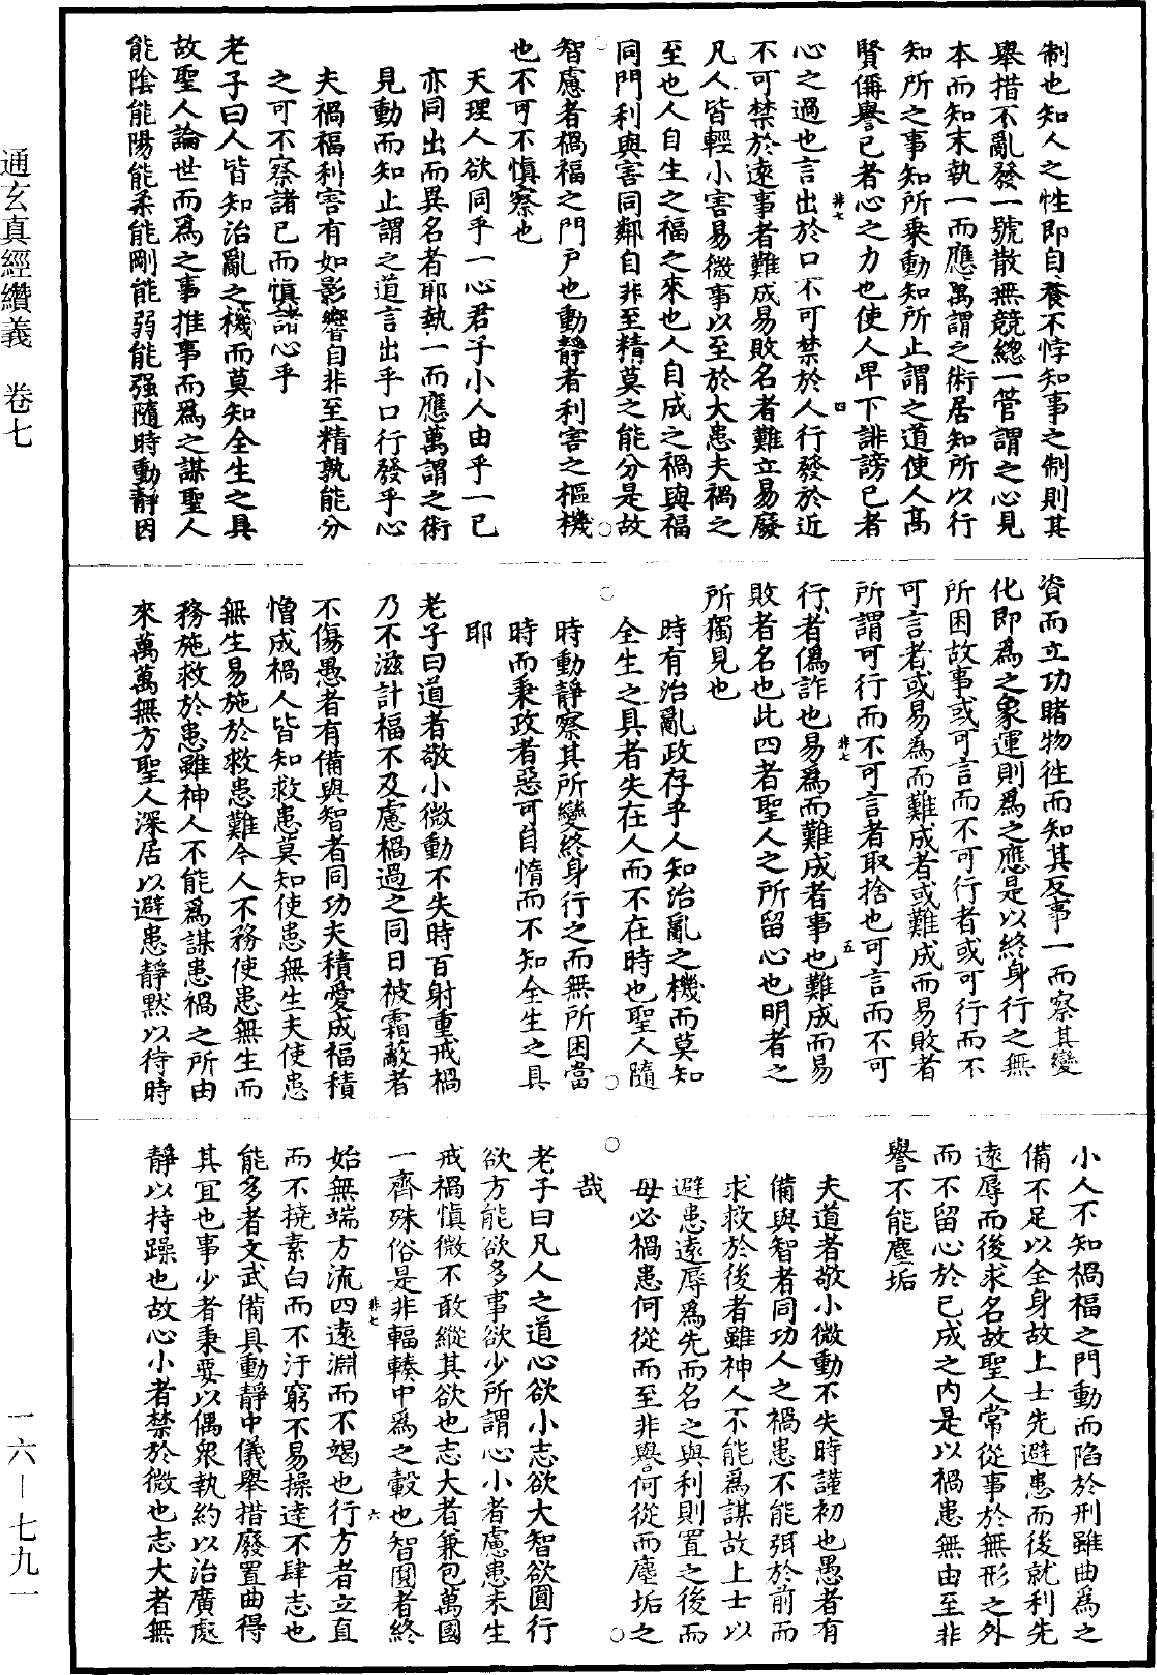 通玄真經纘義　卷七
制也知人之性即自養不悖知事之制則其
舉措不亂發一號散無競總一管謂之心見
本而知末執一而應萬謂之術居知所以行
知所之事知所乘動知所止謂之道使人高
賢偁譽己者心之力也使人卑下誹謗己者
心之過也言出於口不可禁於人行發於近
不可禁於遠事者難成易敗名者難立易廢
凡人皆輕小害易微事以至於大患夫禍之
至也人自生之福之來也人自成之禍與福
同門利與害同鄰自非至精莫之能分是故
智慮者禍福之門戶也動靜者利害之樞機
也不可不慎察也
天理人欲同乎一心君子小人由乎一己
亦同出而異名者耶執一而應萬謂之術
見動而知止謂之道言出乎口行發乎心
夫禍福利害有如影響自非至精孰能分
之可不察諸己而慎諸心乎
老子曰人皆知治亂之機而莫知全生之具
故聖人論世而為之事推事而為之謀聖人
能陰能陽能柔能剛能弱能强隨時動靜因
資而立功睹物往而知其反事一而察其變
化即為之象運則為之應是以終身行之無
所困故事或可言而不可行者或可行而不
可言者或易為而難成者或難成而易敗者
所謂可行而不可言者取捨也可言而不可
行者偽詐也易為而難成者事也難成而易
敗者名也此四者聖人之所留心也明者之
所獨見也
時有治亂政存乎人知治亂之機而莫知
全生之具者失在人而不在時也聖人隨
時動靜察其所變終身行之而無所困當
時而秉政者惡可自惰而不知全生之具
耶
老子曰道者敬小微動不失時百射重戒禍
乃不滋計福不及慮禍過之同日被霜蔽者
不傷愚者有備與智者同功夫積愛成福積
憎成禍人皆知救患莫知使患無生夫使患
無生易施於救患難今人不務使患無生而
務施救於患雖神人不能為謀患禍之所由
來萬萬無方聖人深居以避患靜默以待時
小人不知禍福之門動而陷於刑雖曲為之
備不足以全身故上士先避患而後就利先
遠辱而後求名故聖人常從事於無形之外
而不留心於已成之內是以禍患無由至非
譽不能塵垢
夫道者敬小微動不失時謹初也愚者有
備與智者同功人之禍患不能弭於前而
求救於後者雖神人不能為謀故上士以
避患遠辱為先而名之與利則置之後而
毋必禍患何從而至非譽何從而塵垢之
哉
老子曰凡人之道心欲小志欲大智欲圓行
欲方能欲多事欲少所謂心小者慮患未生
戒禍慎微不敢縱其欲也志大者兼包萬國
一齊殊俗是非輻輳中為之轂也智圓者終
始無端方流四遠淵而不竭也行方者立直
而不撓素白而不汙窮不易操達不肆志也
能多者文武備具動靜中儀舉措廢置曲得
其宜也事少者秉要以偶衆執約以治廣處
靜以持躁也故心小者禁於微也志大者無
一六—七九一